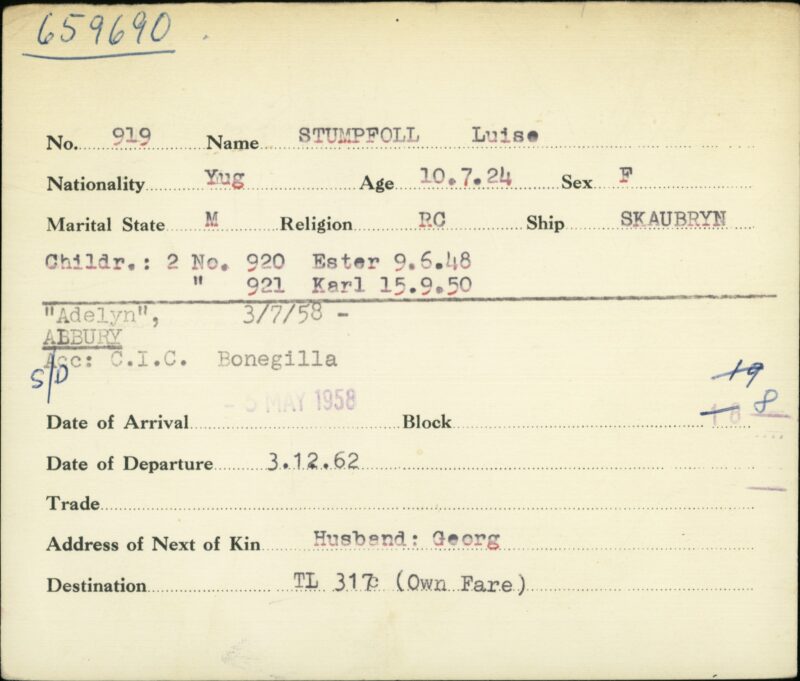 659690
No. 919 Name STUMPFOLL Luise
Nationality Yug Age 10.7.24 Sex F
Marital State M Religion RC Ship SKAUBRYN
Childr.: 2 No. 920 Ester 9.6.48
" 921 Karl 15.9.50
"Adelyn", 3/7/58 -
ALBURY
Acc: C.I.C. Bonegilla
S/D
19
Date of Arrival - 5 MAY 1958 Block 18 8
Date of Departure 3.12.62
Trade
Address of Next of Kin Husband: Georg
Destination TL 317c (Own Fare)